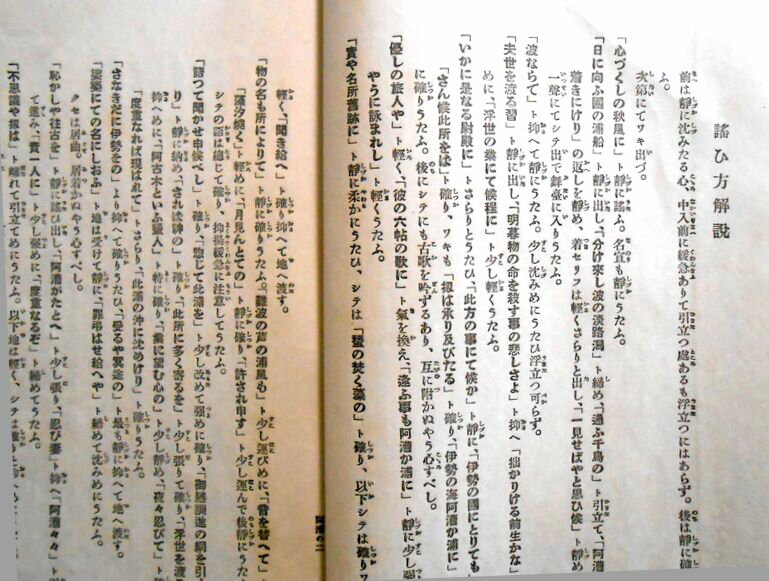 謠ひ方解說
前は靜に沈みたる心、中入前に緩急ありて引立つ處あるも浮立つにはあらず。後は靜に確
ふ。
次第にてワキ出づ。
「心づくしの秋風に」ト靜に謠ふ。名宣も靜にうたふ。
「日に向ふ國の浦船」ト靜に出し、「分け來し波の淡路潟」ト締め「通ふ千鳥の」ト引立て、「阿漕
着きにけり」の返しを靜め、着セリフは輕くさらりと出し、「一見せばやと思ひ候」ト靜め
一聲にてシテ出で舞臺に入りうたふ。
「波ならで」ト抑へて靜にうたふ。少し沈みめにうたひ浮立つ可らず。
「夫世を渡る習」ト靜に出し、「明暮物の命を殺す事の悲しさよ」ト抑へ「拙かりける前生かな」
めに、「浮世の業にて候程に」ト少し輕くうたふ。
「いかに是なる尉殿に」トさらりとうたひ「此方の事にて候か」ト靜に「伊勢の國にとりても
「さん候此所をば」ト確り、ワキも「扨は承り及びたる」ト確り、「伊勢の海阿漕か浦に」ト靜に少し强
に確りうたふ。後にシテにも古歌を吟ずるあり、互に附かぬやう心すべし。
「優しの旅人や」ト輕く、「彼の六帖の歌に」ト氣を換え、「逢ふ事も阿漕か浦に」ト靜に少し
やうに詠まれし」ト輕くうたふ。
「實や名所舊跡に」ト靜に柔かにうたひ、シテは「蜑の焚く藻の」ト確り、以下シテは確りワ
輕く、「聞き給へ」ト確り抑へて地へ渡す。
「物の名も所によりて」ト靜に確りうたふ。「難波の芦の浦風も」ト少し運びめに、「音を替へて」
「藻汐燒く」ト輕めに、「月見んとての」ト靜に確り、「許され申す」ト少し運んで後靜にうたふ
シテの語は總じて確り、抑揚緩急に注意してうたふ。
「語つて聞かせ申候べし」ト確り、「惣じて此浦を」ト少し改めて强めに確り、「御膳調進の網を引
り」ト靜に納め、「されば神の」ト確り、「此所に多く寄るを」ト少し張りて確り、「浮世を渡
抑へめに、「阿古木といふ蜑人」ト特に確り、「業に望む心の」ト少し靜め、「夜々忍びて」ト
「度重なれば現はれて」トさらり、「此浦の沖に沈めけり」ト確りうたふ。
「さなきだに伊勢をの」より抑へて確りうたひ、「憂るや冥途の」ト最も靜に抑へて地へ渡す。
「娑婆にての名にしおふ」ト地は受けて靜に、「罪弔はせ給へや」ト締めて沈みめにうたふ。
クセは居曲。居着かぬやう心すべし。
「恥かしや往古を」ト靜に運び出し、「阿漕がたとへ」ト少し張り、「忍び妻」ト抑へ「阿漕々々」ト
て進み、「責一人に」ト少し强めに、「度重なるぞ」ト締めてうたふ。
「不思議や扨は」ト離れて引立てめにうたふ。以下地は輕く、シテは確り
阿漕の二